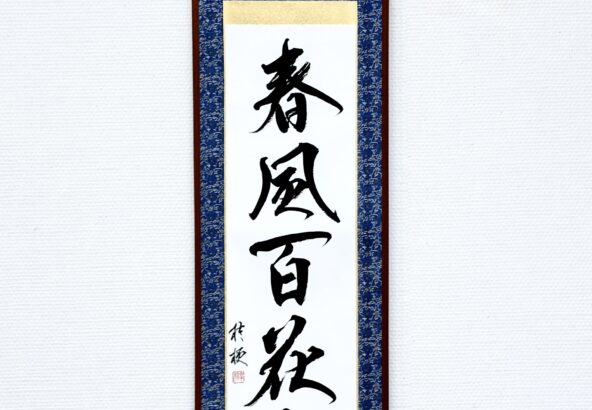 春風百花
桔梗